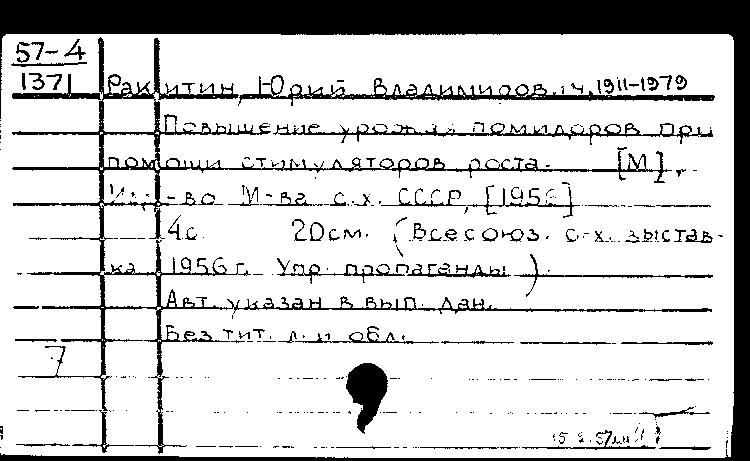 57-4
1371 Ракитин, Юрий Владимирович, 1911-1979
Повышение урожая помидоров при
помощи стимуляторов роста. [М],
Изд-во М-ва с.х. СССР, [1956]
4с. 20см. (Всесоюз. с-х. выстав-
ка 1956 г. Упр. пропаганды).
Авт. указан в вып. дан.
Без тит. л. и обл.
7